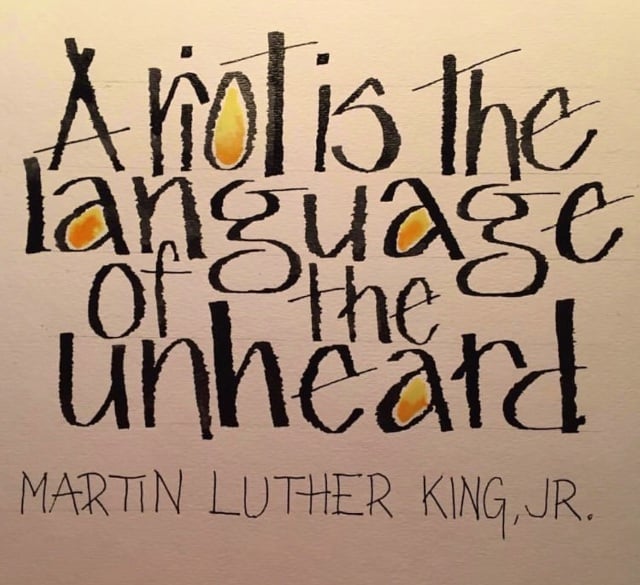 A riot is the
language
of the
unheard
MARTIN LUTHER KING, JR.